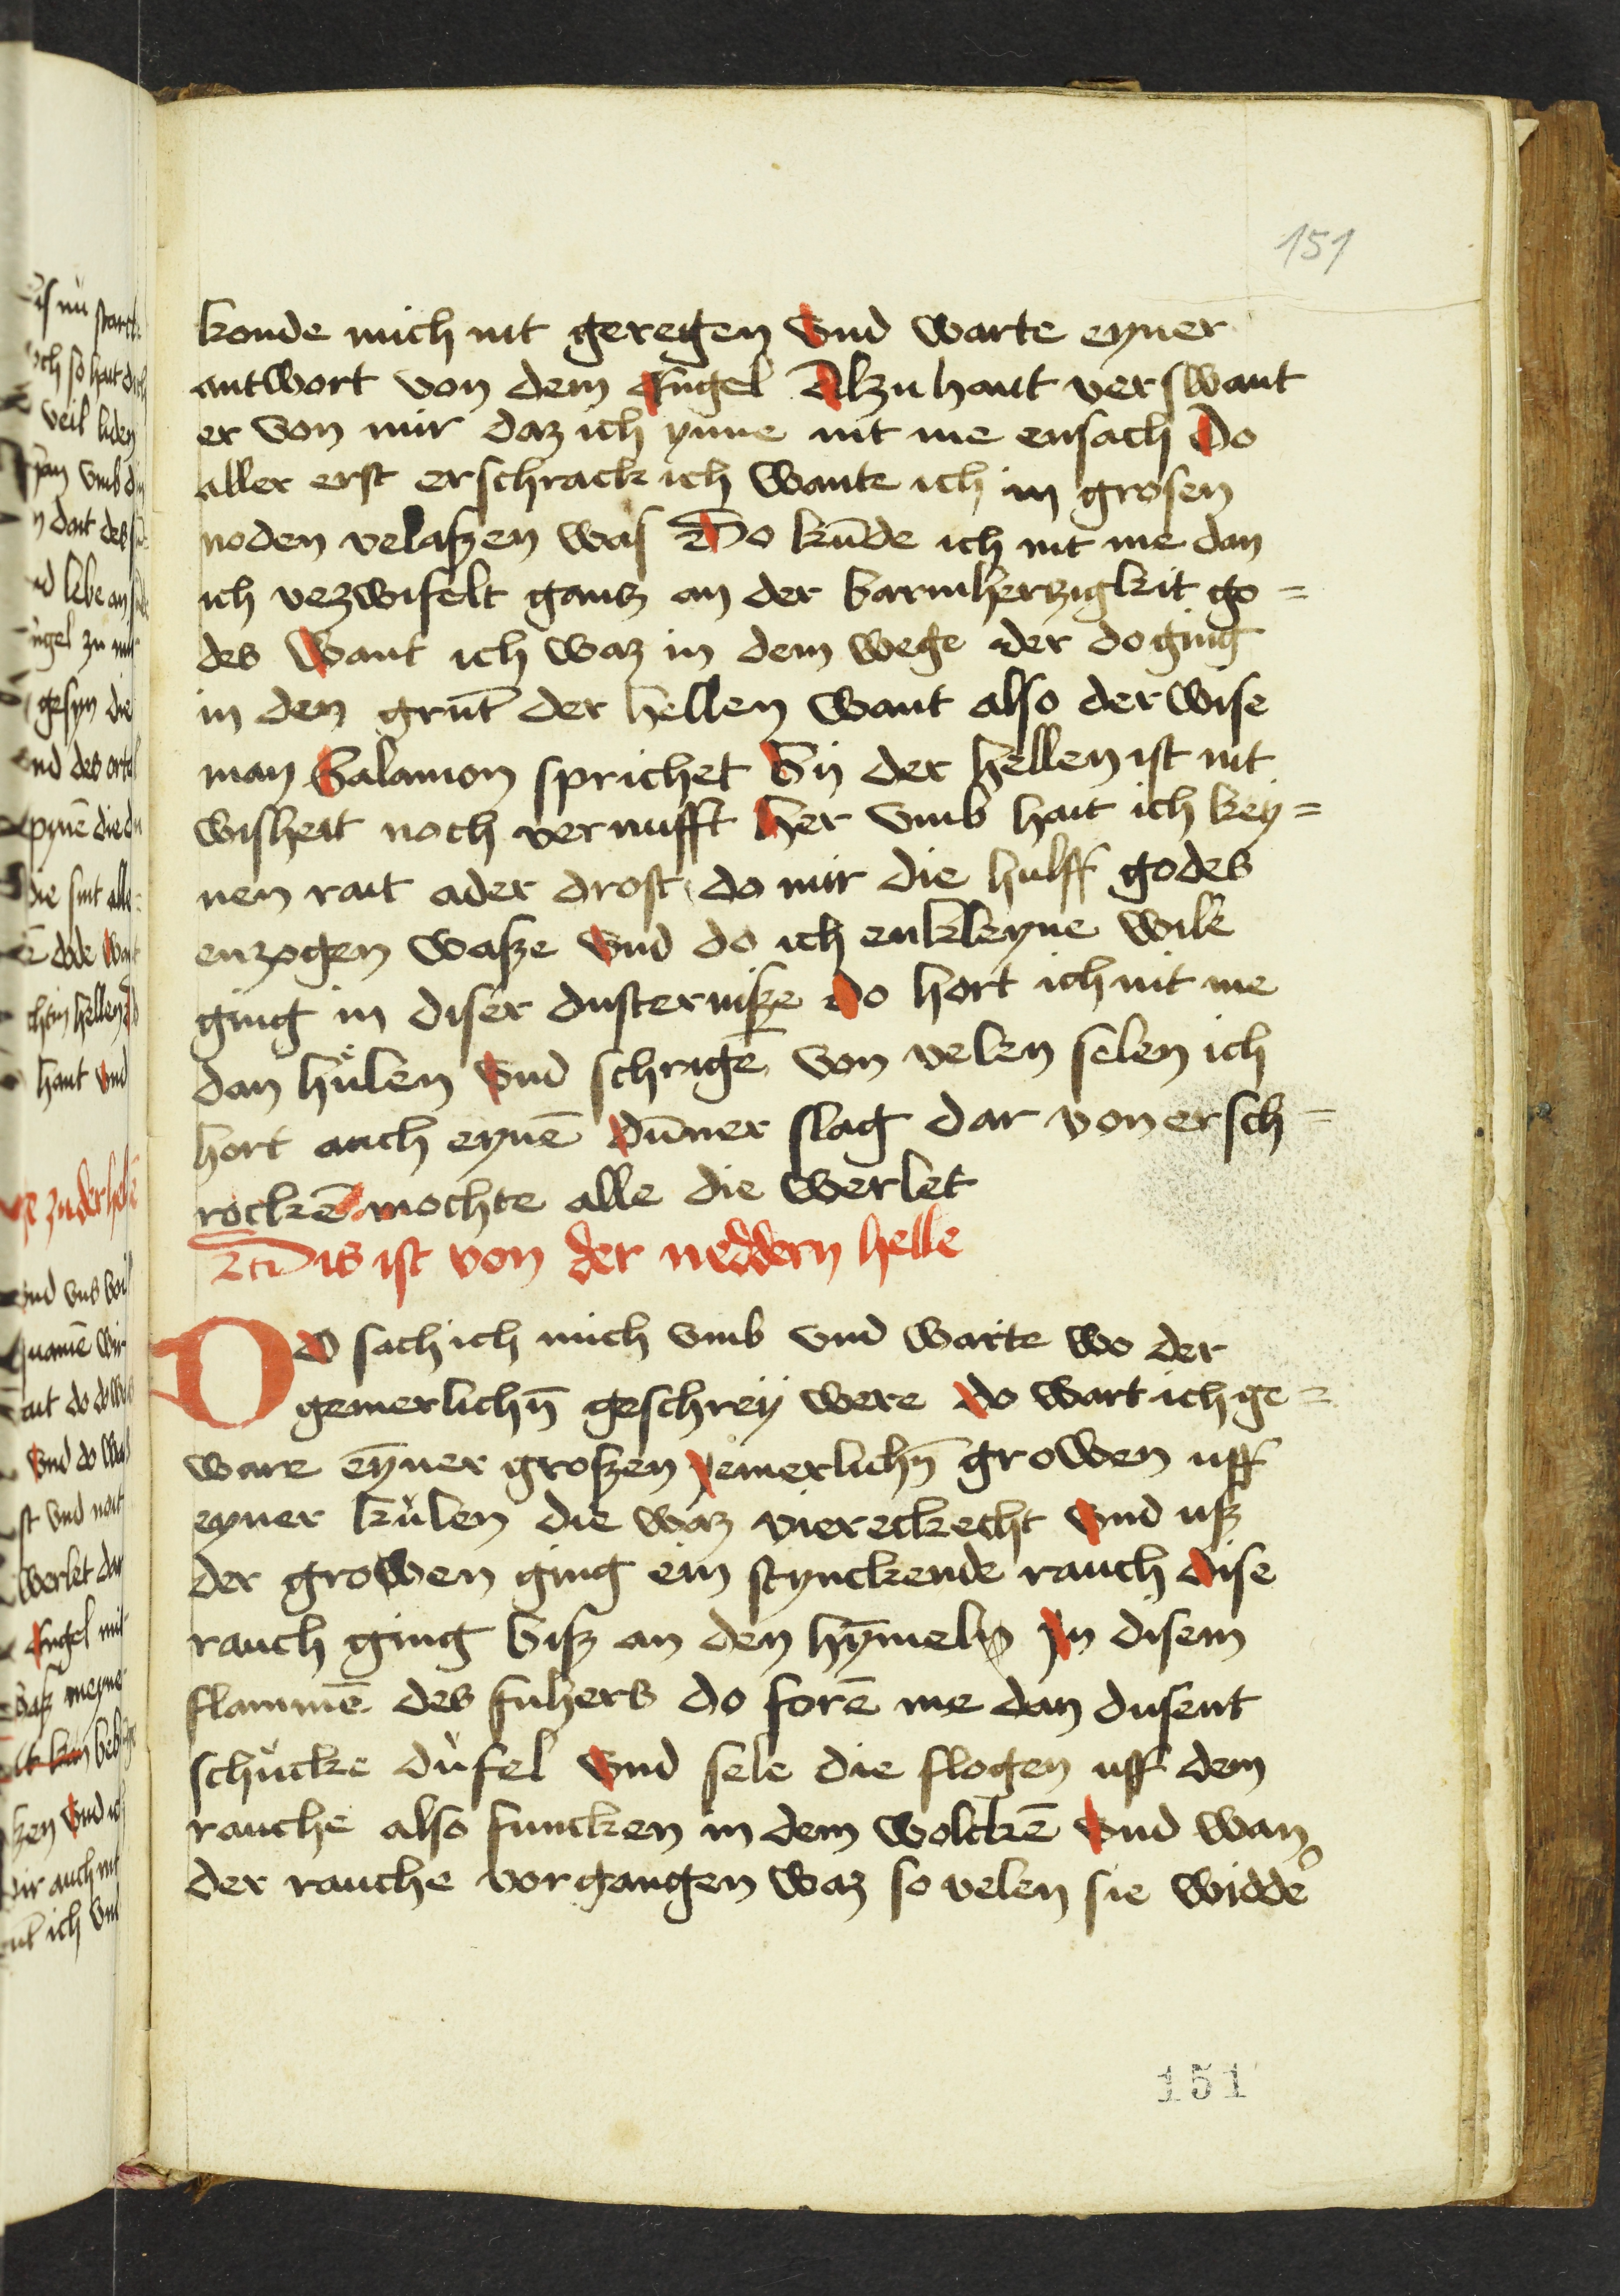 151
konde mich nit geregen vnd warte eyner
antwort von dem Engel Alzuhant verswant
er von mir daz ich ynne nit me ensach Do
aller erst erschrack ich wante ich in grosen
noden velaszen was Do kūde ich nit me dan
ich vezwifelt gantz an der barmhertzigkit go=
des want ich waz in dem wege der do ging
in den grūt der hellen want also der wise
man Salamon sprichet By der hellen ist nit
wisheit noch vernufft her vmb hait ich key=
nen rait ader drost do mir die hulff godes
enzogen wasze vnd do ich enkleyne wile
ging in diser dusternisze do hort ich nit me
dan hůlen vnd schrigē von velen selen ich
hort auch eynē dūner slag dar von ersch=
rockē mochte alle die werlet
Dis ist von der neddern helle
Do sach ich mich vmb vnd warte wo der
gemerlichn̄ geschrey were do wart ich ge=
ware eyner groszen yemerlichn̄ growen uff
eyner kůlen die waz viereckecht vnd usz
der growen ging ein stynckende rauch dise
rauch ging bisz an den hȳmeln Jn disem
flammē des fuhers do forē me dan dusent
schůcke důfel vnd sele die flogen uff dem
rauche also funcken in dem wolckē vnd wan
der rauche vorgangen waz so velen sie widde͛
151